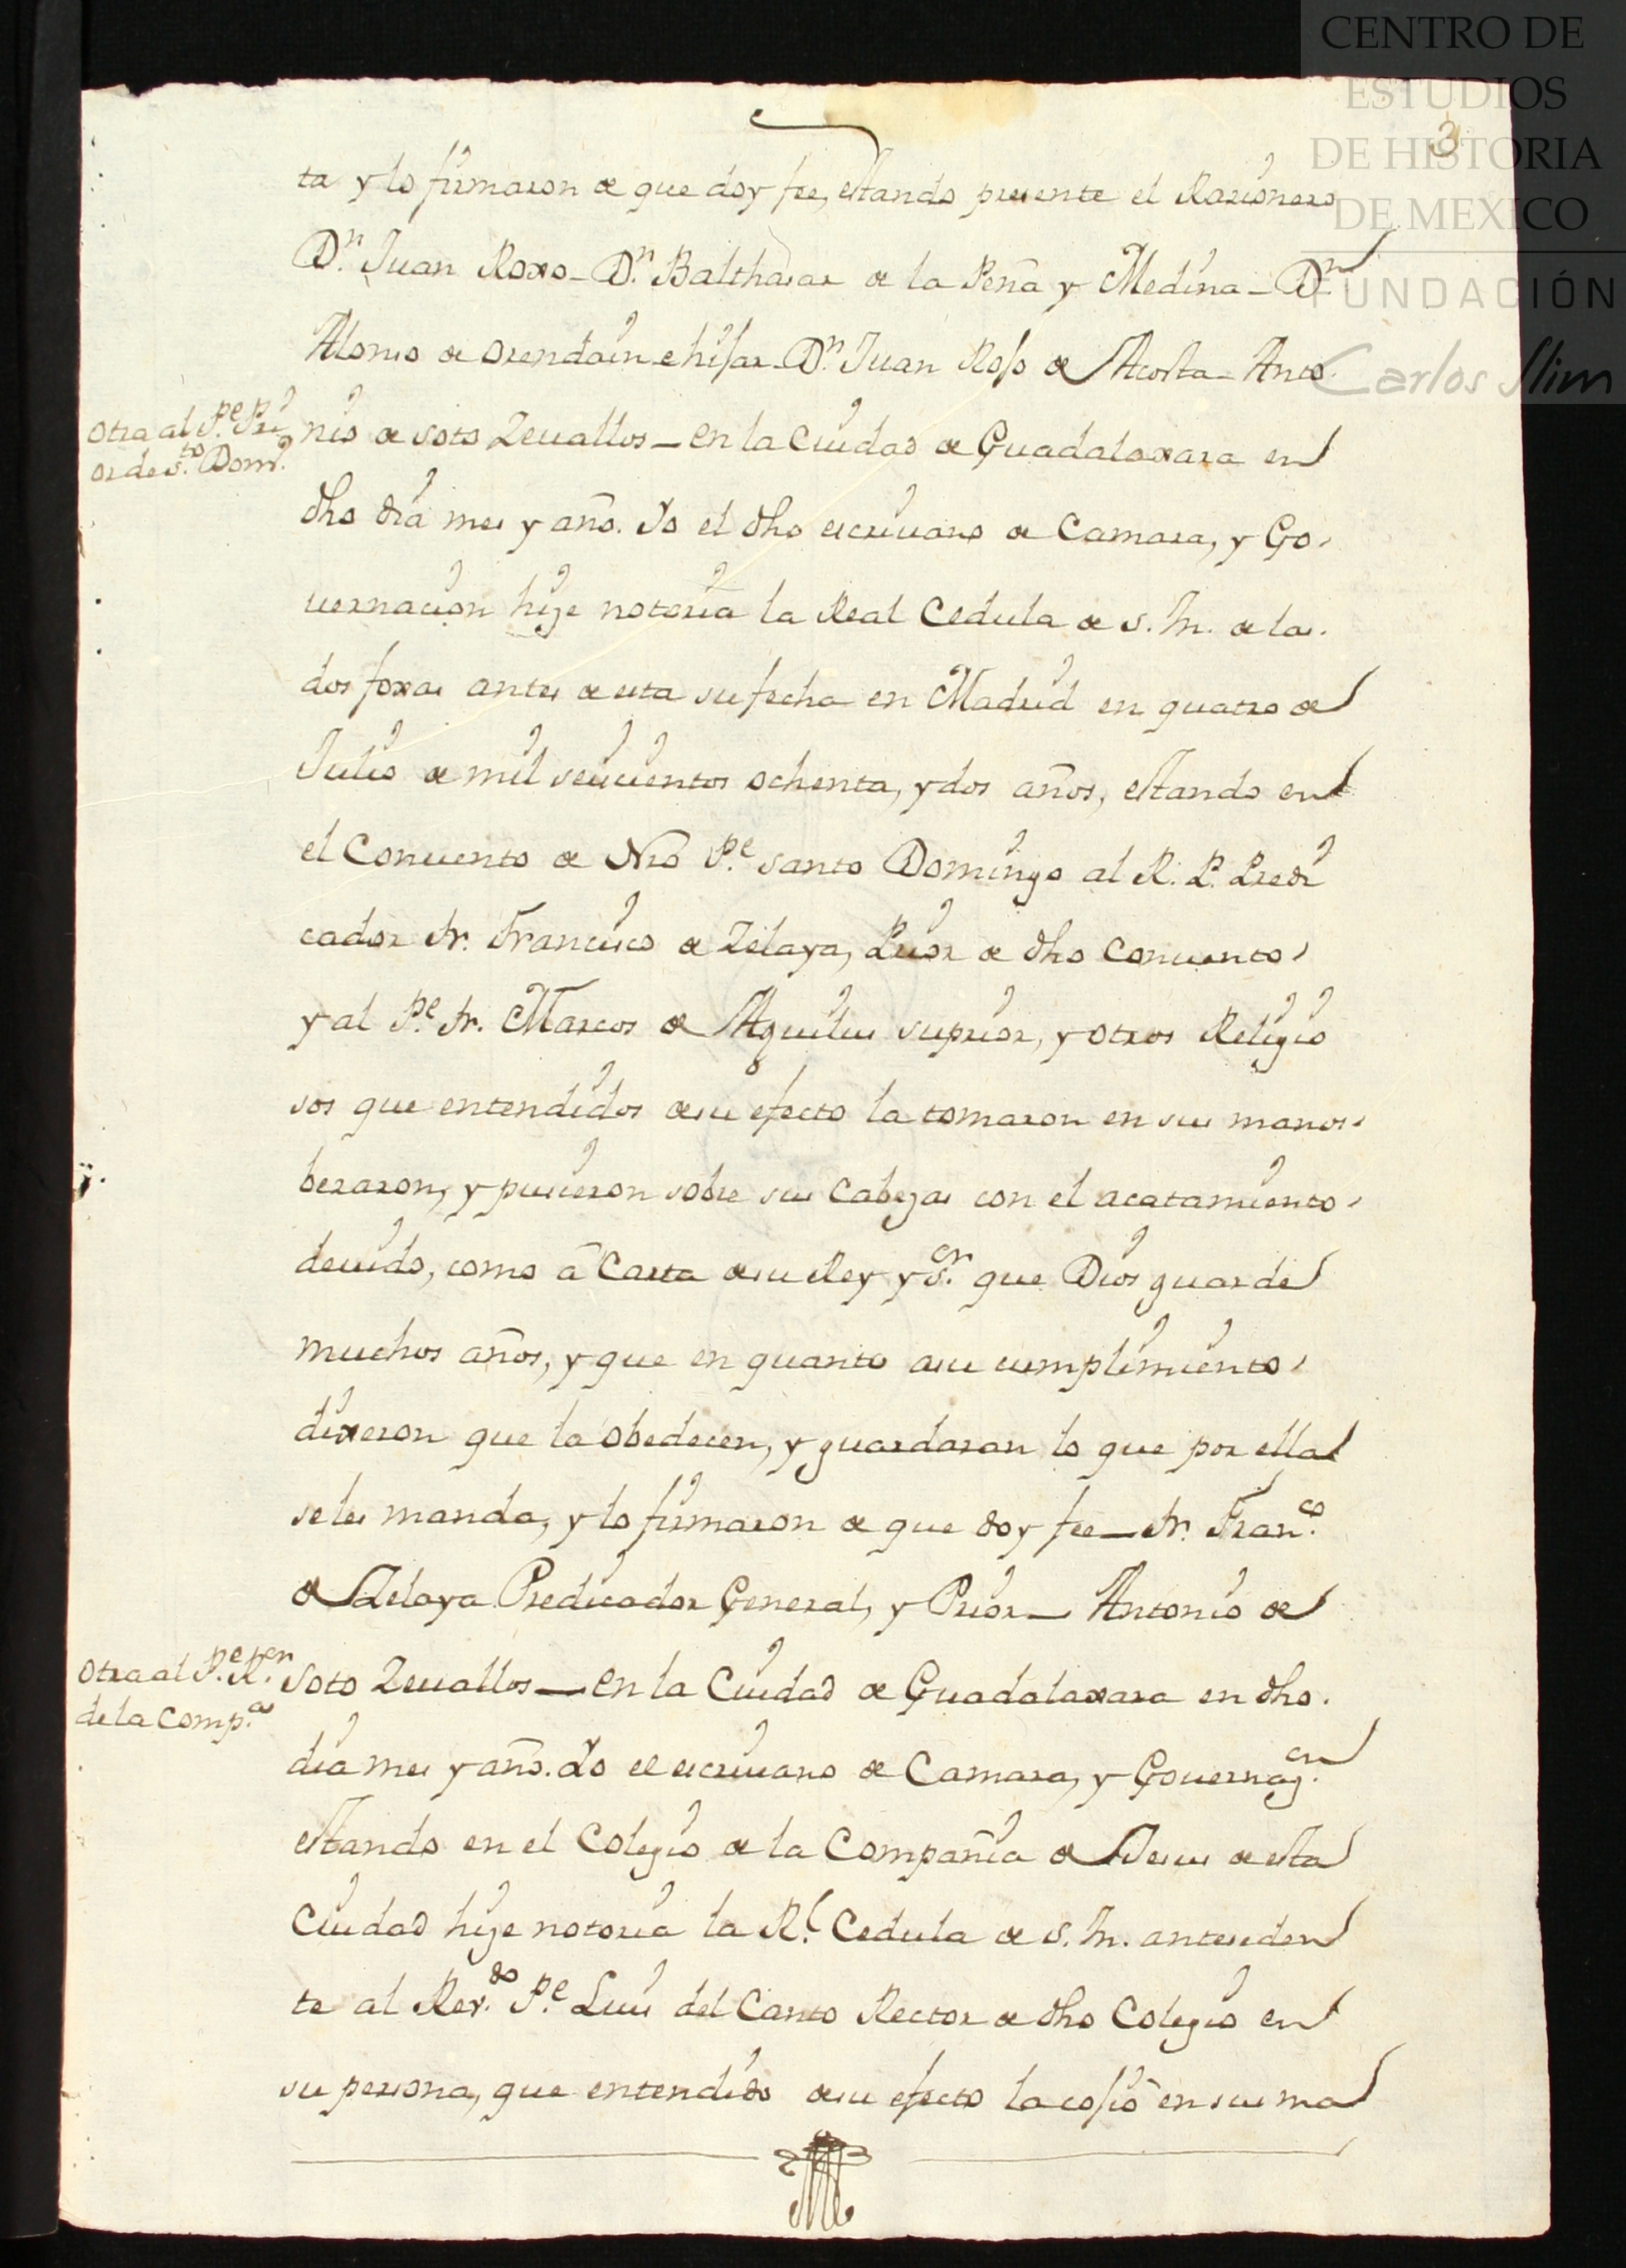 CENTRO DE
ESTUDIOS
DE HISTORIA
DE MEXICO
FUNDACIÓN
Carlos Slim
3
ta y lo firmaron de que doy fee, estando presente el Razionero
D.n Juan Roxo - D.n Balthasar de la Peña y Medina - D.n
Alonso de Orendain e hijar - D.n Juan Rojo de Acosta - Anto
Otra al P.e Pri
or de S.to Dom.o
nio de soto Zeuallos - en la Ciudad de Guadalaxara en
dho dia mes y año. Yo el dho escriuano de Camara, y Go
uernacion hize notoria la Real Cedula de S. M. de las
dos foxas antes de esta su fecha en Madrid en quatro de
Julio de mil seiscientos ochenta, y dos años, estando en
el Conuento de Nro P.e santo Domingo al R. P. Predi
cador fr. Francisco de Zelaya, Prior de dho Conuento
y al P.e fr. Marcos de Aguilus suprior, y otros Religio
sos que entendidos de su efecto la tomaron en sus manos
bezaron, y pusieron sobre sus Cabezas con el acatamiento
deuido, como â Carta de su Rey y S.or que Dios guarde
muchos años, y que en quanto a su cumplimiento
dixeron que la obedecen, y guardaran lo que por ella
se les manda, y lo firmaron de que doy fee - fr. Fran.co
de Zelaya Predicador General, y Prior - Antonio de
Otra al P.e R.or
de la Comp.a
Soto Zeuallos - en la Ciudad de Guadalaxara en dho
dia mes y año. Yo el escriuano de Camara, y Gouernaz.on
estando en el Colegio de la Compañia de Jesus de esta
Ciudad hize notoria la R.l Cedula de S. M. anteceden
te al Reu.do P.e Luis del Canto Rector de dho Colegio en
su persona, que entendido de su efecto la cojio en sus ma